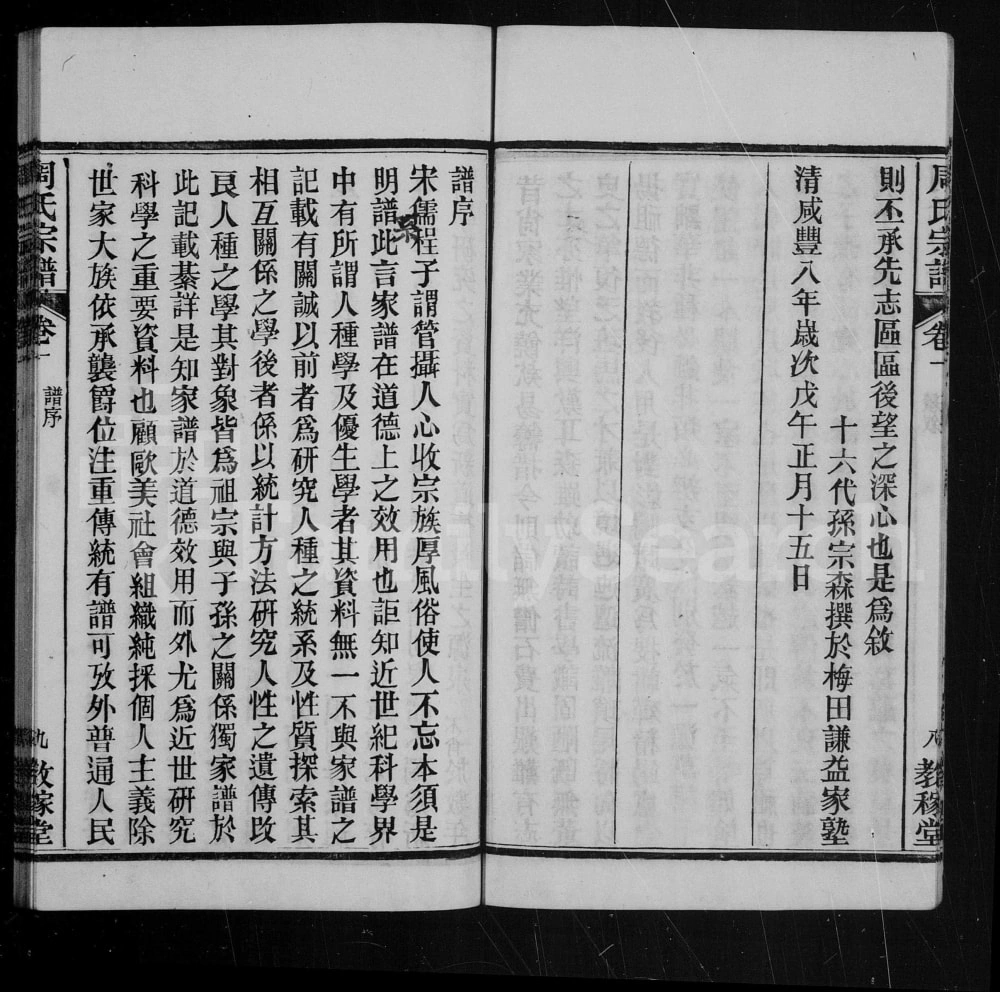 周氏宗譜
卷一
八
教稼堂
則丕承先志區區後望之深心也是爲敘
十六代孫宗森撰於梅田謙益家塾
清咸豐八年歲次戊午正月十五日
譜序
宋儒程子謂管攝人心收宗族厚風俗使人不忘本須是
明譜系此言家譜在道德上之效用也詎知近世紀科學界
中有所謂人種學及優生學者其資料無一不與家譜之
記載有關誠以前者爲研究人種之統系及性質探索其
相互關係之學後者係以統計方法研究人性之遺傳改
良人種之學其對象皆爲祖宗與子孫之關係獨家譜於
此記載綦詳是知家譜於道德效用而外尤爲近世研究
科學之重要資料也顧歐美社會組織純採個人主義除
世家大族依承襲爵位注重傳統有譜可攷外普通人民
周氏宗譜
卷一
譜序
九
教稼堂
FamilySearch